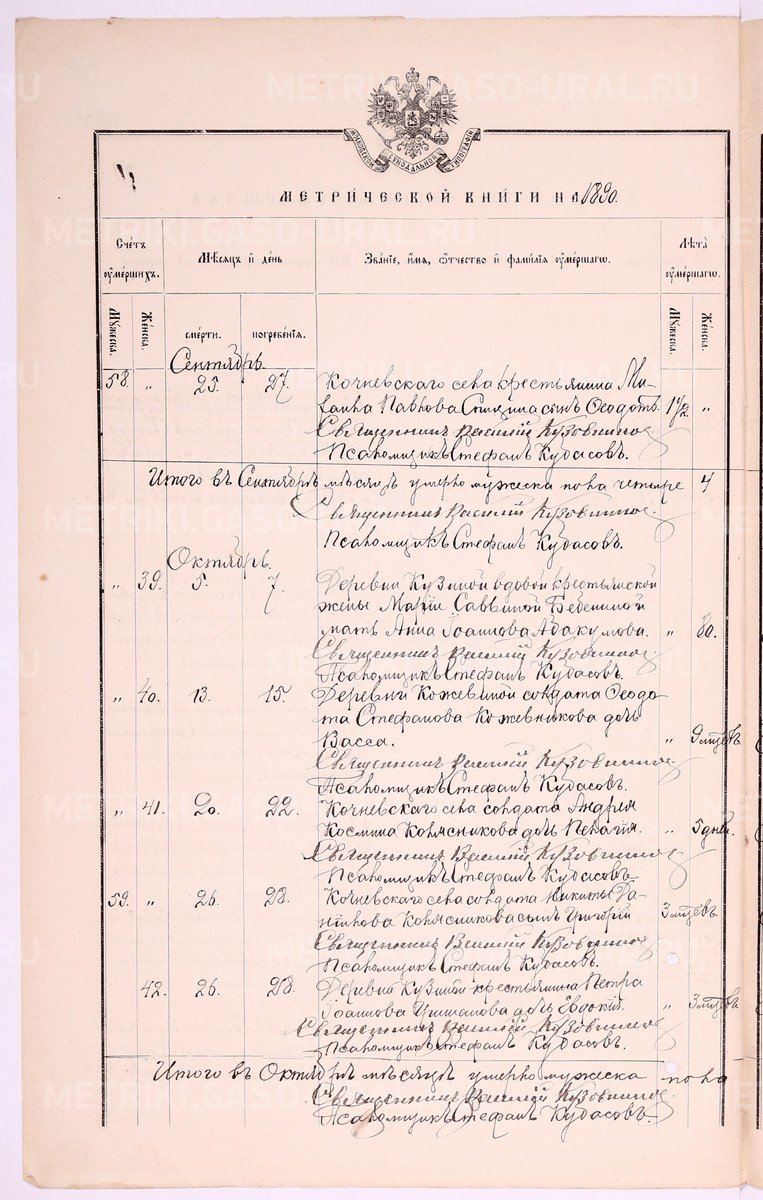 METRIKI.GASO-URAL.RU
МОСКОВСКОЙ СѴНОДАЛЬНОЙ ТИПОГРАФІИ
МЕТРИЧЕСКОЙ КНИГИ НА 1890.
Счетъ оумершихъ.
Мѣсяцъ и день
Званіе, имя, отчество и фамилія оумершагѡ.
Лѣта оумершагѡ.
Мужеска. Женска. смерти. погребенія. Мужеска. Женска.
Сентябрь.
58. " 25. 27. Кочневскаго села крестьянина Ми-
хаила Павлова Спицина сынъ Ѳеодотъ. 1½ "
Священникъ Василій Кузовников
Псаломщикъ Стефанъ Кудасовъ.
Итого въ Сентябрѣ мѣсяцѣ умерло мужеска пола четыре 4
Священникъ Василій Кузовников
Псаломщикъ Стефанъ Кудасовъ.
Октябрь.
" 39. 5. 7. Деревни Кузиной вдовой крестьянской
жены Маріи Саввиной
мать Анна Іоаннова Абакумова. " 80.
Священникъ Василій Кузовников
Псаломщикъ Стефанъ Кудасовъ.
" 40. 13. 15. Деревни Кожевиной солдата Ѳеодо-
та Стефанова Кожевникова дочь
Васса. " 9 мцевъ
Священникъ Василій Кузовников
Псаломщикъ Стефанъ Кудасовъ.
" 41. 20. 22. Кочневскаго села солдата Андрея
Космина Колясникова дочь Пелагія. " 5 дней.
Священникъ Василій Кузовников
Псаломщикъ Стефанъ Кудасовъ.
59. " 26. 28. Кочневскаго села солдата Никиты Да-
нілова Колясникова сынъ Григорій 3 мцевъ
Священникъ Василій Кузовников
Псаломщикъ Стефанъ Кудасовъ.
42. 26. 28. Деревни Кузиной крестьянина Петра
Іоаннова дочь Евдокія. " 3 мцевъ
Священникъ Василій Кузовников
Псаломщикъ Стефанъ Кудасовъ.
Итого въ Октябрѣ мѣсяцѣ умерло мужеска пола
Священникъ Василій Кузовников
Псаломщикъ Стефанъ Кудасовъ.